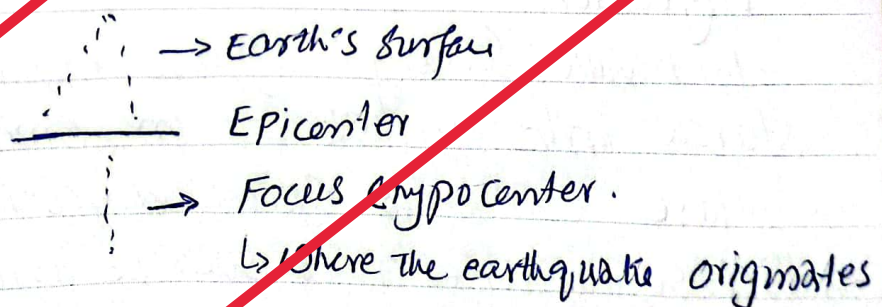 → Earth's Surface
Epicenter
→ Focus / Hypocenter.
↳ Where The earthquake originates